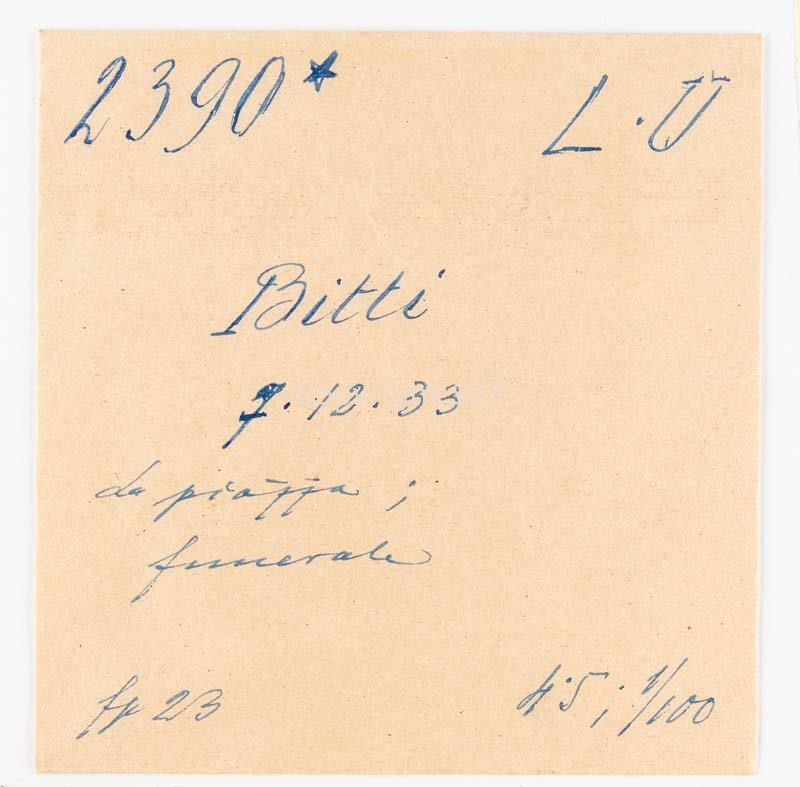 2390* L.Ŭ
Bitti
7.12.33
La piazza;
funerale
fp 23 4.5; 1/100